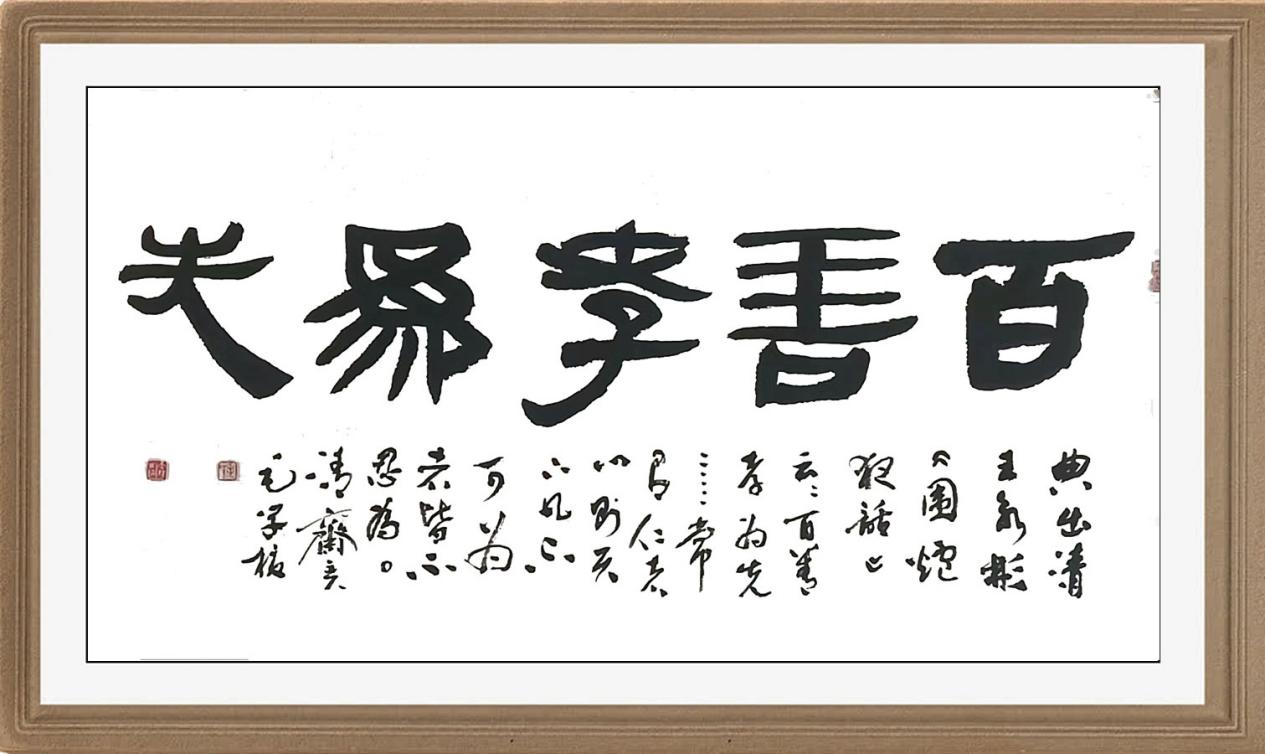 百善孝為先
典出清
王永彬
《圍爐
夜話》
云：百善
孝为先
……常
存仁孝
心则天
下凡不
可为
者皆不
忍為。
清齋
毛学